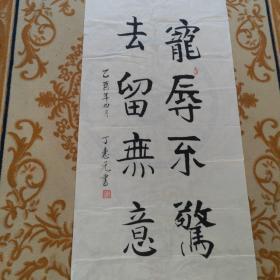 寵辱不驚
去留無意
乙酉年四月
丁惠元書